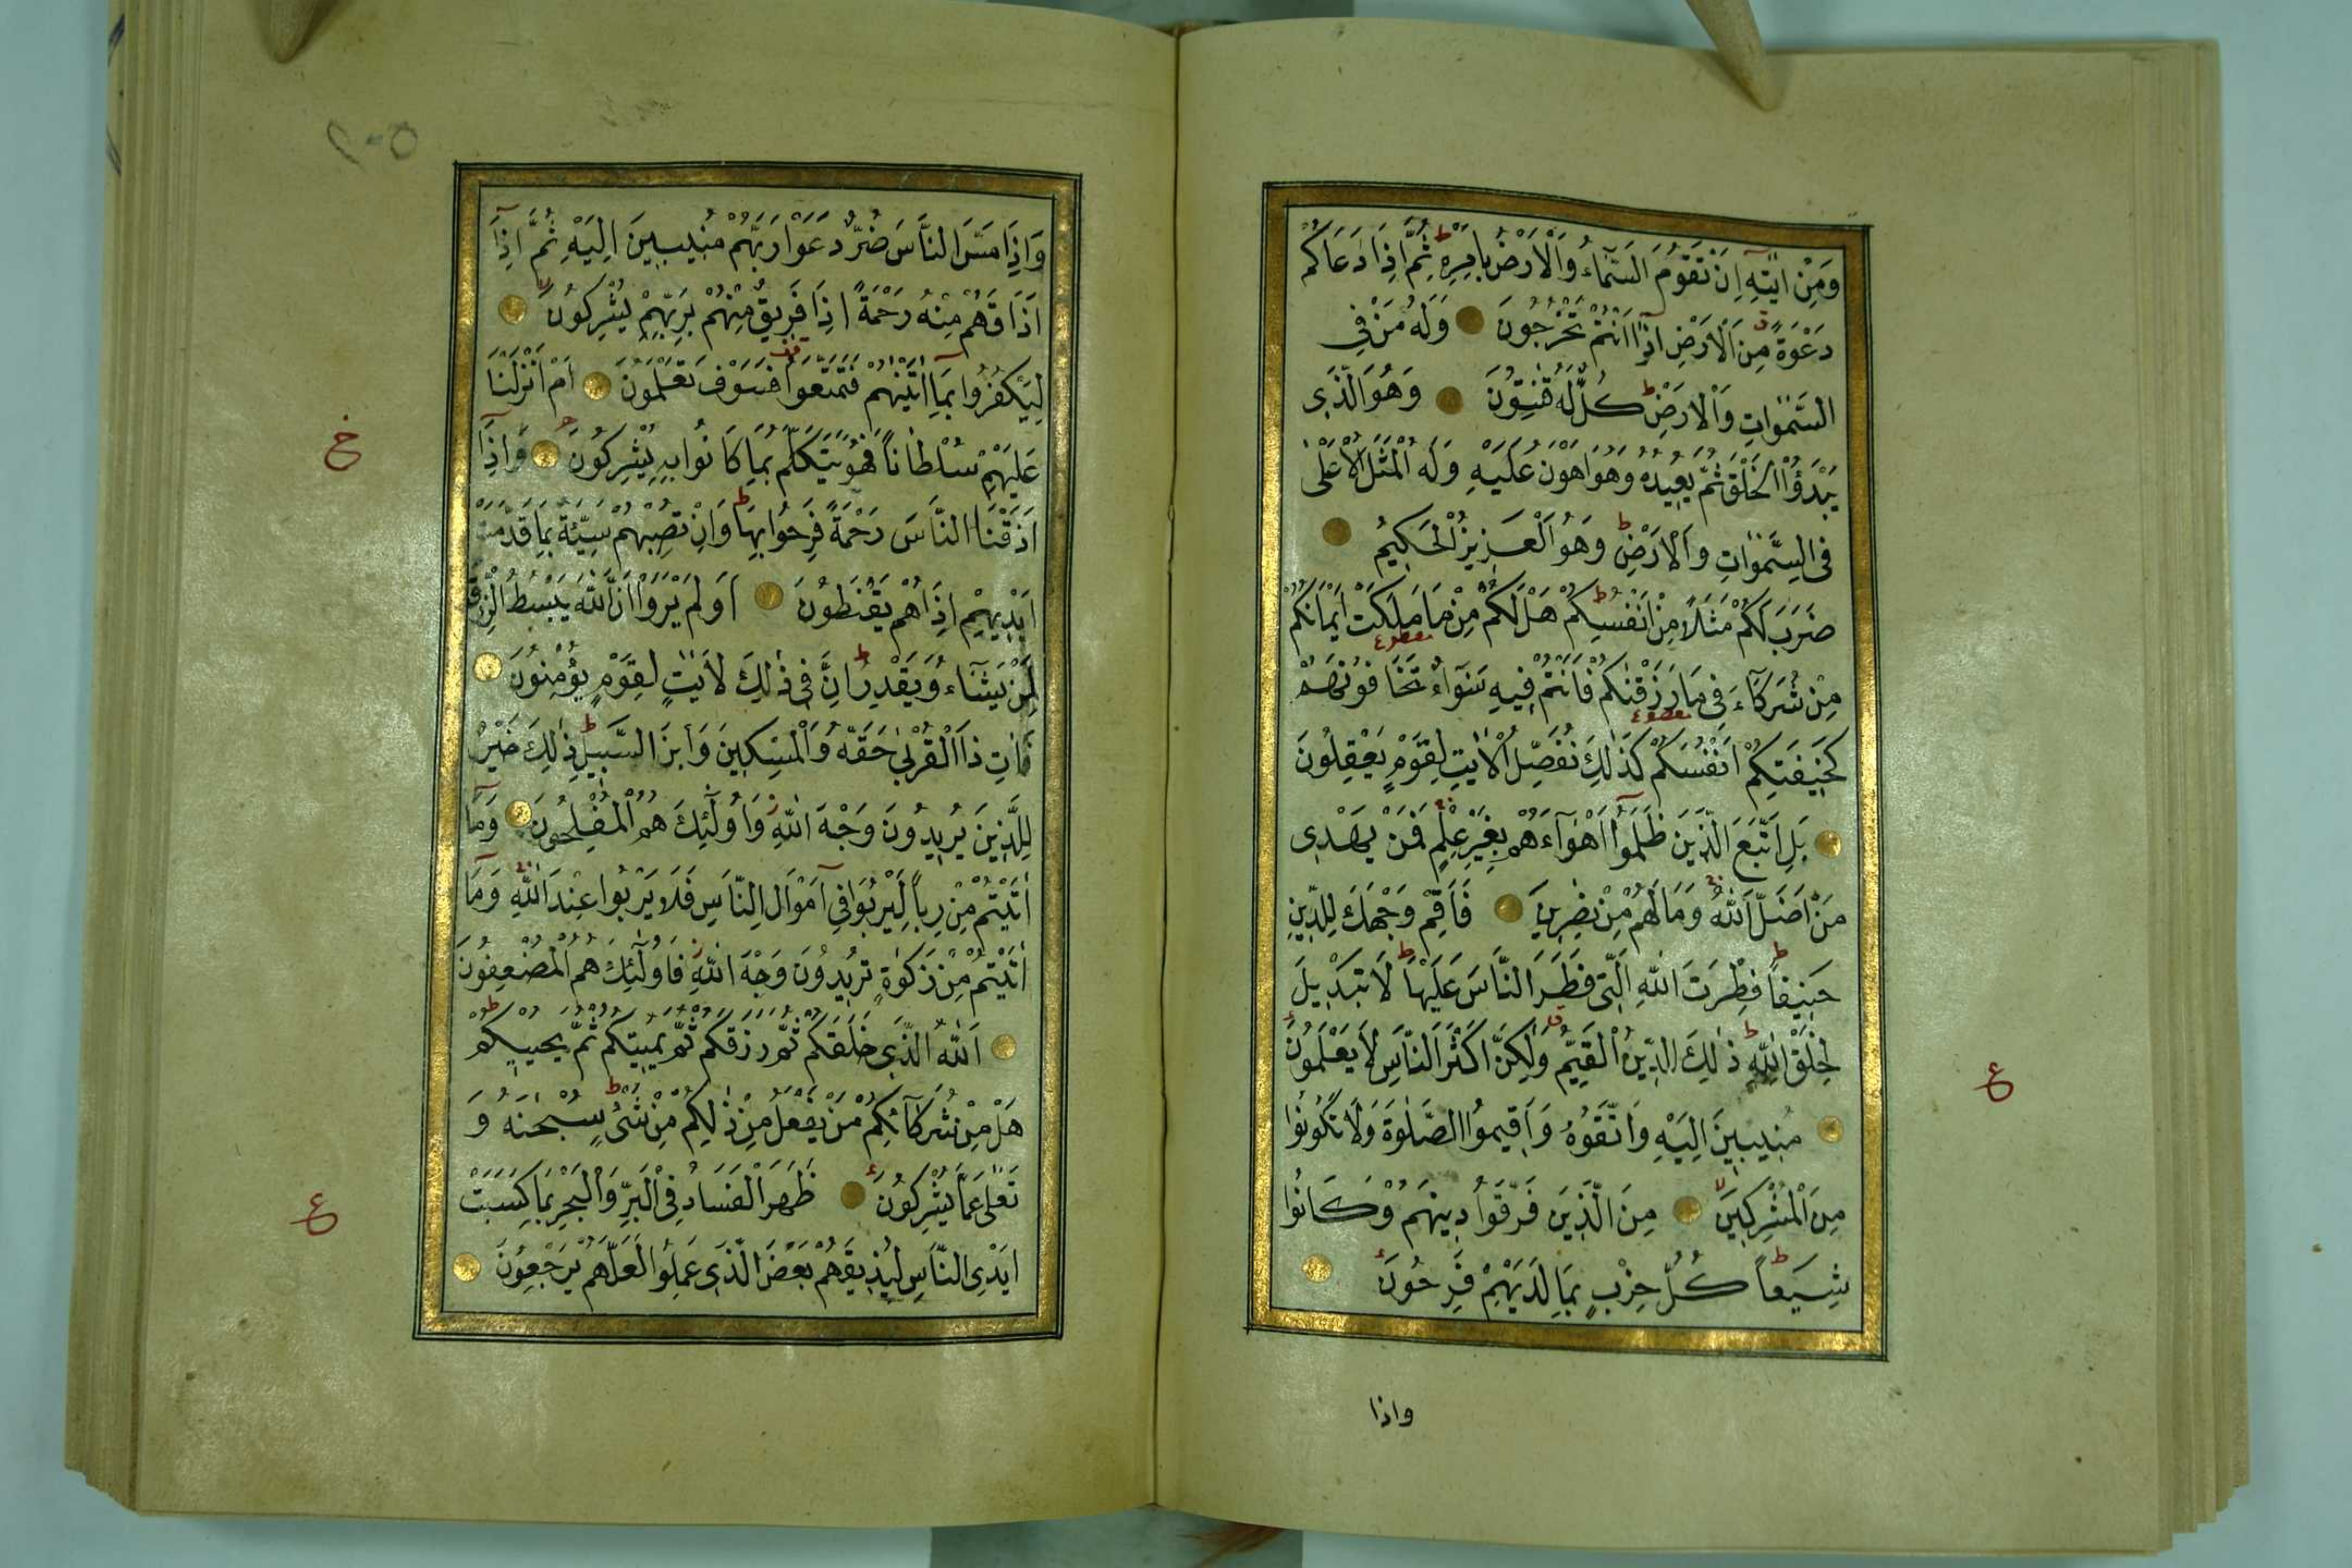 وَمِنْ اٰيٰتِهٖ اَنْ تَقُومَ السَّمَآءُ وَالْاَرْضُ بِاَمْرِهٖ ط ثُمَّ اِذَا دَعَاكُمْ
دَعْوَةً ق مِنَ الْاَرْضِ اِذَٓا اَنْتُمْ تَخْرُجُونَ وَلَهُ مَنْ فِى
السَّمٰوَاتِ وَالْاَرْضِ ط كُلٌّ لَهُ قٰنِتُونَ وَهُوَ الَّذِى
يَبْدَؤُا الْخَلْقَ ثُمَّ يُعِيدُهُ وَهُوَ اَهْوَنُ عَلَيْهِ وَلَهُ الْمَثَلُ الْاَعْلٰى
فِى السَّمٰوَاتِ وَالْاَرْضِ ط وَهُوَ الْعَزِيزُ الْحَكِيمُ
ضَرَبَ لَكُمْ مَثَلًا مِنْ اَنْفُسِكُمْ ط هَلْ لَكُمْ مِنْ مَا مَلَكَتْ اَيْمَانُكُمْ
مِنْ شُرَكَآءَ فِى مَا رَزَقْنٰكُمْ فَاَنْتُمْ فِيهِ سَوَآءٌ تَخَافُونَهُمْ
كَخِيفَتِكُمْ اَنْفُسَكُمْ كَذٰلِكَ نُفَصِّلُ الْاٰيٰتِ لِقَوْمٍ يَعْقِلُونَ
بَلِ اتَّبَعَ الَّذِينَ ظَلَمُٓوا اَهْوَآءَهُمْ بِغَيْرِ عِلْمٍ فَمَنْ يَهْدِى
مَنْ اَضَلَّ اللّٰهُ وَمَا لَهُمْ مِنْ نٰصِرِينَ فَاَقِمْ وَجْهَكَ لِلدِّينِ
حَنِيفًا ط فِطْرَتَ اللّٰهِ الَّتِى فَطَرَ النَّاسَ عَلَيْهَا ط لَا تَبْدِيلَ
لِخَلْقِ اللّٰهِ ط ذٰلِكَ الدِّينُ الْقَيِّمُ ق وَلٰكِنَّ اَكْثَرَ النَّاسِ لَا يَعْلَمُونَ
ع
مُنِيبِينَ اِلَيْهِ وَاتَّقُوهُ وَاَقِيمُوا الصَّلٰوةَ وَلَا تَكُونُوا
مِنَ الْمُشْرِكِينَ لا مِنَ الَّذِينَ فَرَّقُوا دِينَهُمْ وَكَانُوا
شِيَعًا ط كُلُّ حِزْبٍ بِمَا لَدَيْهِمْ فَرِحُونَ
واذا
وَاِذَا مَسَّ النَّاسَ ضُرٌّ دَعَوْا رَبَّهُمْ مُنِيبِينَ اِلَيْهِ ثُمَّ اِذَٓا
اَذَاقَهُمْ مِنْهُ رَحْمَةً اِذَا فَرِيقٌ مِنْهُمْ بِرَبِّهِمْ يُشْرِكُونَ لا
لِيَكْفُرُوا بِمَٓا اٰتَيْنٰهُمْ فَتَمَتَّعُوا فَسَوْفَ تَعْلَمُونَ اَمْ اَنْزَلْنَا
عَلَيْهِمْ سُلْطَانًا فَهُوَ يَتَكَلَّمُ بِمَا كَانُوا بِهٖ يُشْرِكُونَ وَاِذَٓا
خ
اَذَقْنَا النَّاسَ رَحْمَةً فَرِحُوا بِهَا ط وَاِنْ تُصِبْهُمْ سَيِّئَةٌ بِمَا قَدَّمَتْ
اَيْدِيهِمْ اِذَا هُمْ يَقْنَطُونَ اَوَلَمْ يَرَوْا اَنَّ اللّٰهَ يَبْسُطُ الرِّزْقَ
لِمَنْ يَشَآءُ وَيَقْدِرُ ط اِنَّ فِى ذٰلِكَ لَاٰيٰتٍ لِقَوْمٍ يُؤْمِنُونَ
فَاٰتِ ذَا الْقُرْبٰى حَقَّهُ وَالْمِسْكِينَ وَابْنَ السَّبِيلِ ط ذٰلِكَ خَيْرٌ
لِلَّذِينَ يُرِيدُونَ وَجْهَ اللّٰهِ ز وَاُولٰٓئِكَ هُمُ الْمُفْلِحُونَ وَمَٓا
اٰتَيْتُمْ مِنْ رِبًا لِيَرْبُوَا فِٓى اَمْوَالِ النَّاسِ فَلَا يَرْبُوا عِنْدَ اللّٰهِ وَمَٓا
اٰتَيْتُمْ مِنْ زَكٰوةٍ تُرِيدُونَ وَجْهَ اللّٰهِ فَاُولٰٓئِكَ هُمُ الْمُضْعِفُونَ
اَللّٰهُ الَّذِى خَلَقَكُمْ ثُمَّ رَزَقَكُمْ ثُمَّ يُمِيتُكُمْ ثُمَّ يُحْيِيكُمْ ط
هَلْ مِنْ شُرَكَآئِكُمْ مَنْ يَفْعَلُ مِنْ ذٰلِكُمْ مِنْ شَىْءٍ ط سُبْحٰنَهُ وَ
تَعٰلٰى عَمَّا يُشْرِكُونَ ظَهَرَ الْفَسَادُ فِى الْبَرِّ وَالْبَحْرِ بِمَا كَسَبَتْ
ع
اَيْدِى النَّاسِ لِيُذِيقَهُمْ بَعْضَ الَّذِى عَمِلُوا لَعَلَّهُمْ يَرْجِعُونَ